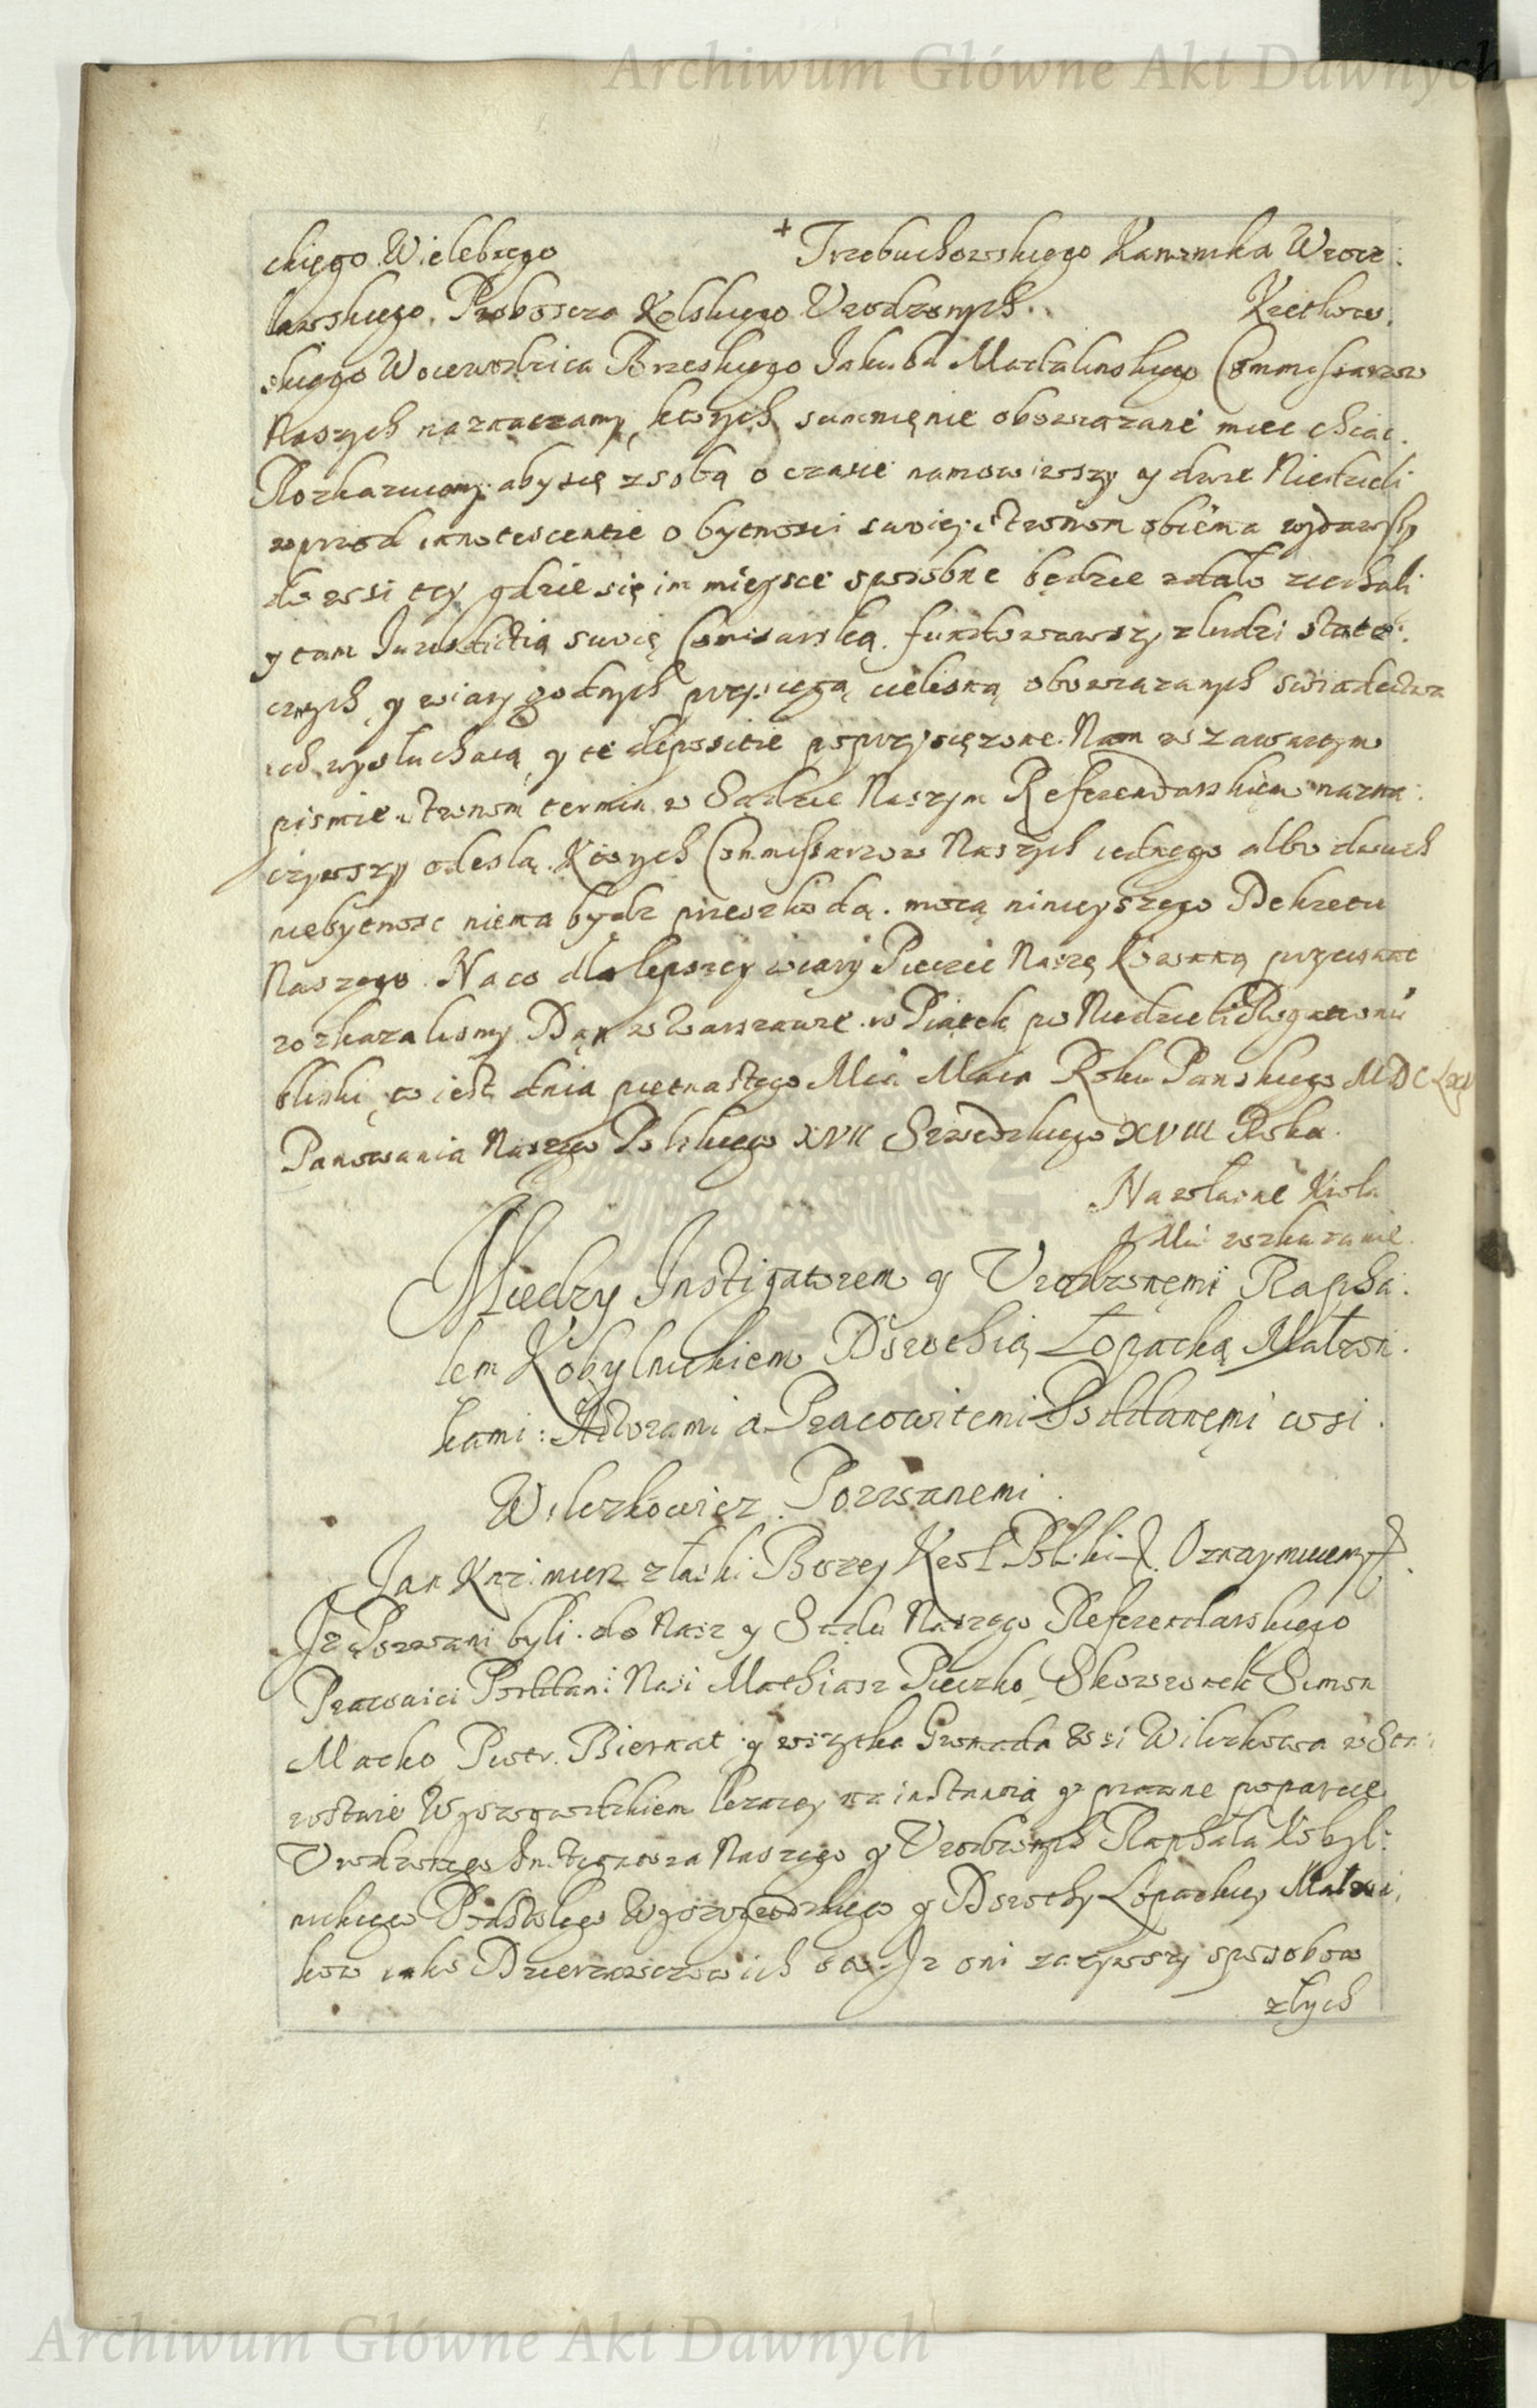 Archiwum Główne Akt Dawnych
ckięgo Wielebnego + Trzebuchowskięgo Kanonika Wroc:
ławskięgo, Proboscza Kolskięgo Urodzonych Kretkow,
skięgo Woiewodzica Brzeskięgo Jakuba Madalinskięgo Commissarzow
Naszych naznaczamy, ktorych sumnięnie obowiązane miec chcąc.
Rozkazuiemy aby się z sobą o czasie namowiwszy y dwie Niedzieli
wprzod innotescentie o bytnosci swoięj stronom obiema wydawszy
do wsi tey gdzie się im mięjsce sposobne będzie zdało ziechali
y tam Jurisdictią swoię Comisarską fundowawszy z ludzi state:
cznych y wiary godnych przysięgą cielesną obowiązanych swiadectwa
ich wysłuchaią y te depositie poprzysiężone Nam w zawartym
pismie stronom termin w Sądzie Naszym Referendarskięm nazna:
czywszy odeslą. Ktorych Commissarzow Naszych iednęgo albo dwuch
niebytnosc niema bydz przeszkodą. mocą ninięyszęgo Dekretu
Naszego. Na co dla lepszey wiary Pieczęc Naszę Koronną przycisnąc
rozkazalismy Dan w Warszawie w Piątek po Niedzieli Rogationũ
bliski, to iest dnia piętnastęgo Mca Maia Roku Panskięgo MDCLXV
Panowania Naszęgo Polskięgo XVII Szwedzkięgo XVIII Roku.
Na własne Krola
J Mci wskazanie.
Między Instigatorem y Urodzonęmi Rapha:
lem Kobylnickiem Dorothią Łopacką Małzon:
kami: Aktorami a Pracowitemi Poddanęmi wsi
Wilczkowicz Pozwanemi
Jan Kazimierz z łaski Bozey Krol Polski &. Oznaymuiemy &.
Jz Pozwani byli do Nasz y Sądu Naszego Referendarskięgo
Pracowici Poddani Nasi Mathiasz Pieczko, Skowronek Simon
Macko Piotr. Biernat y wszytka Gromada Wsi Wilczkowa w Sta:
rostwie Wyszogrodzkiem lezącej na instantią y prawne poparcie
Urodzonęgo Instigatora Naszęgo y Urodzonych Raphała Kobyl:
nickięgo Podstolęgo Wyszogrodzkięgo y Dorothy Łopackiey Małzon,
kow iako Dzierzawcow ich o to Jz oni zazywszy sposobow
złych
Archiwum Główne Akt Dawnych